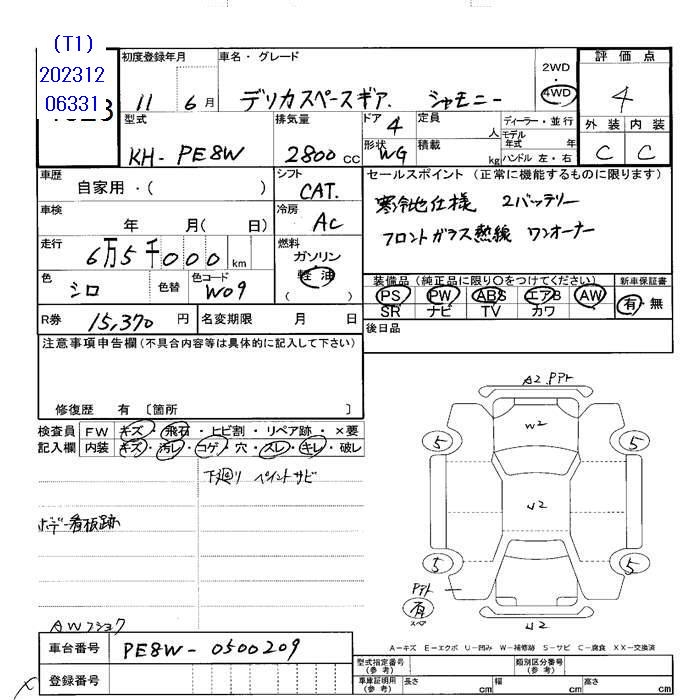 (T1)
202312
06331
初度登録年月
11 6月
車名・グレード
デリカスペースギア. シャモニー
2WD
・
4WD
評価点
4
型式
KH- PE8W
排気量
2800cc
ドア 4
形状 WG
定員 人
積載 kg
ディーラー・並行
モデル年式 年
ハンドル 左・右
外装 内装
C C
車歴
自家用・( )
シフト
CAT.
車検
年 月( 日)
冷房
AC
走行
6万5千000km
燃料
ガソリン
軽油
( )
色
シロ
色替
色コード
W09
R券 15,370円
名変期限 月 日
セールスポイント (正常に機能するものに限ります)
寒冷地仕様 2バッテリー
フロントガラス熱線 ワンオーナー
装備品 (純正品に限り○をつけてください)
新車保証書
PS PW ABS エアB AW
有・無
SR ナビ TV カワ
後日品
注意事項申告欄(不具合内容等は具体的に記入して下さい)
修復歴 有 〔箇所 〕
検査員記入欄
FW キズ・飛石・ヒビ割・リペア跡・×要
内装 キズ・汚レ・コゲ・穴・スレ・キレ・破レ
下廻り ペイントサビ
ボデー看板跡
AWフショク
A2.PPト
W2
5 5
U2
5 5
PPト
有
スペア
U2
A-キズ E-エクボ U-凹み W-補修跡 S-サビ C-腐食 XX-交換済
車台番号 PE8W-0500209
登録番号
型式指定番号(参考)
類別区分番号(参考)
車庫証明用(参考) 長さ cm 幅 cm 高さ cm